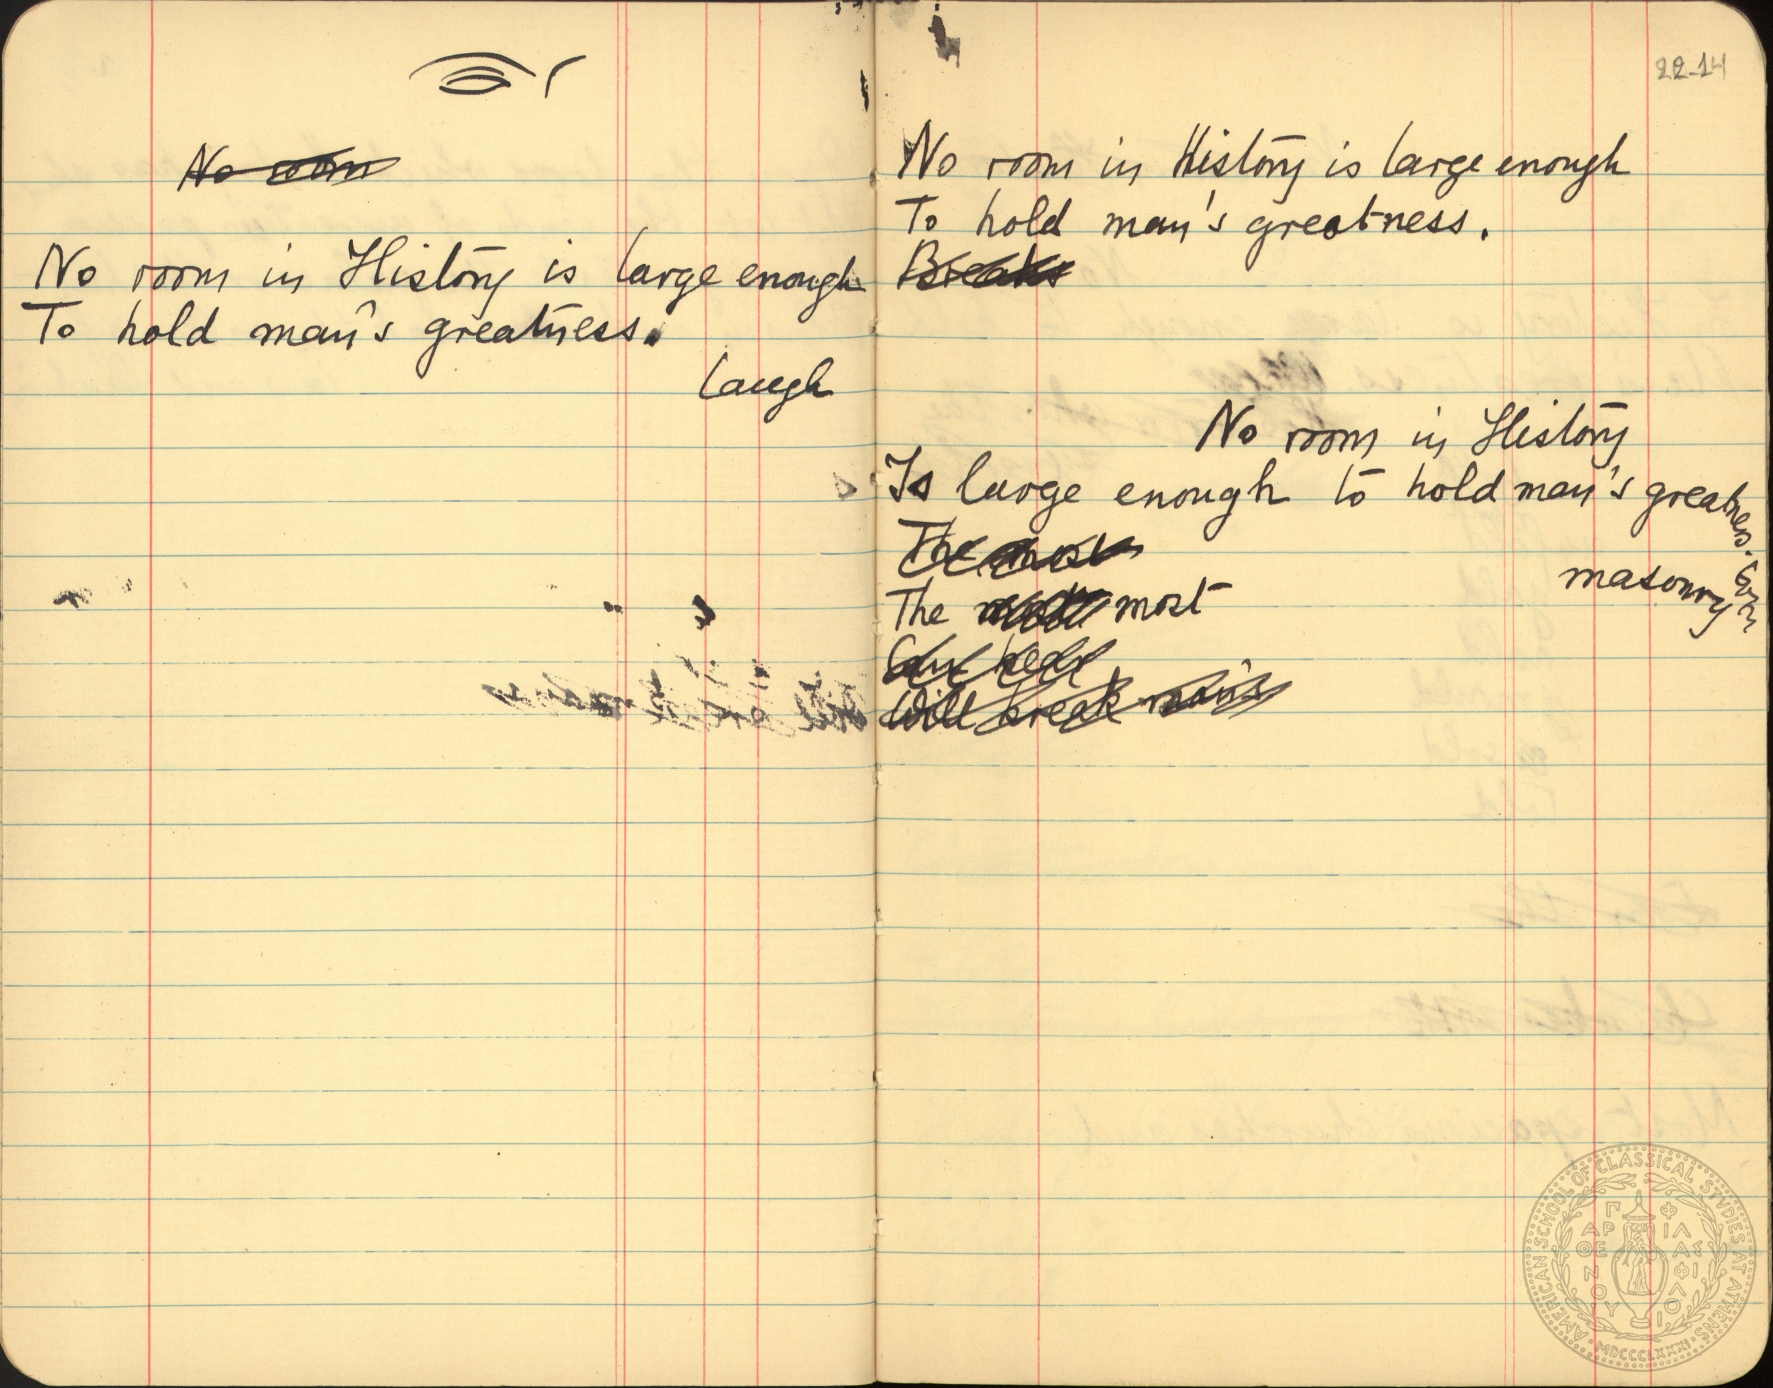 No room
No room in History is large enough
To hold man's greatness.
laugh
22-14
No room in History is large enough
To hold man's greatness.
Breaks
No room in History
Is large enough to hold man's greatness.
The most
masonry
The most
Will break man's
AMERICAN SCHOOL OF CLASSICAL STUDIES AT ATHENS · MDCCCLXXXI
ΠΑΡΘΕΝΟΥ ΦΙΛΑΣ ΦΙΛΟΙ